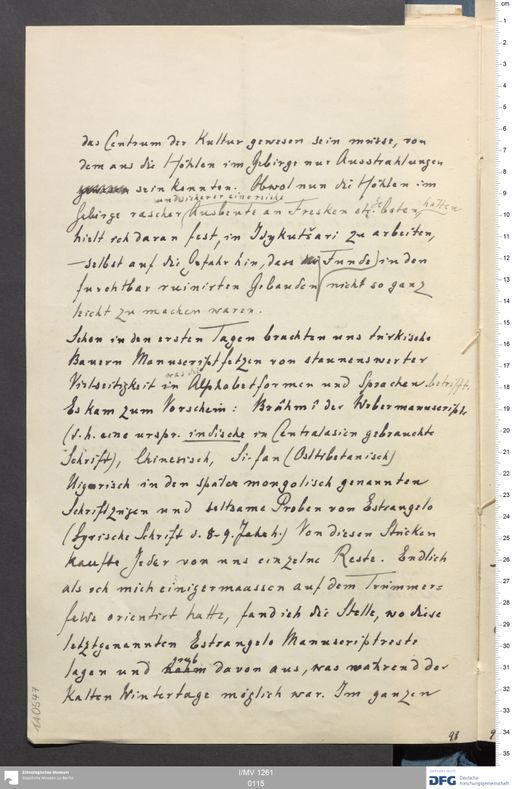 das Centrum der Kultur gewesen sein müsse, von
dem aus die Höhlen im Gebirge nur Ausstrahlungen
sein konnten. Obwol nun die Höhlen im
und sicherer eine reiche
Gebirge rascher Ausbeute an Fresken etc. boten, hatten
hielt ich daran fest, in Idykutšari zu arbeiten,
selbst auf die Gefahr hin, dass Funde in den
furchtbar ruinirten Gebäuden nicht so ganz
leicht zu machen waren.
Schon in den ersten Tagen brachten uns türkische
Bauern Manuscriptfetzen von staunenswerter
was die
Vielseitigkeit in Alphabetformen und Sprachen betrifft.
Es kam zum Vorschein: Brâhmî der Webermanuscripte
(d.h. eine urspr. indische in Centralasien gebrauchte
Schrift), Chinesisch, Si-fan (Osttibetanisch)
Uigurisch in den später mongolisch genannten
Schriftzügen und seltsame Proben von Estrangelo
(Syrische Schrift d. 8-9. Jahrh.) Von diesen Stücken
kaufte Jeder von uns einzelne Reste. Endlich
als ich mich einigermaassen auf dem Trümmer=
felde orientirt hatte, fand ich die Stelle, wo diese
letztgenannten Estrangelo Manuscriptreste
grub
lagen und nahm davon aus, was während der
kalten Wintertage möglich war. Im ganzen
98
I/MV 1261
0115
Ethnologisches Museum
Staatliche Museen zu Berlin
DFG
Deutsche
Forschungsgemeinschaft